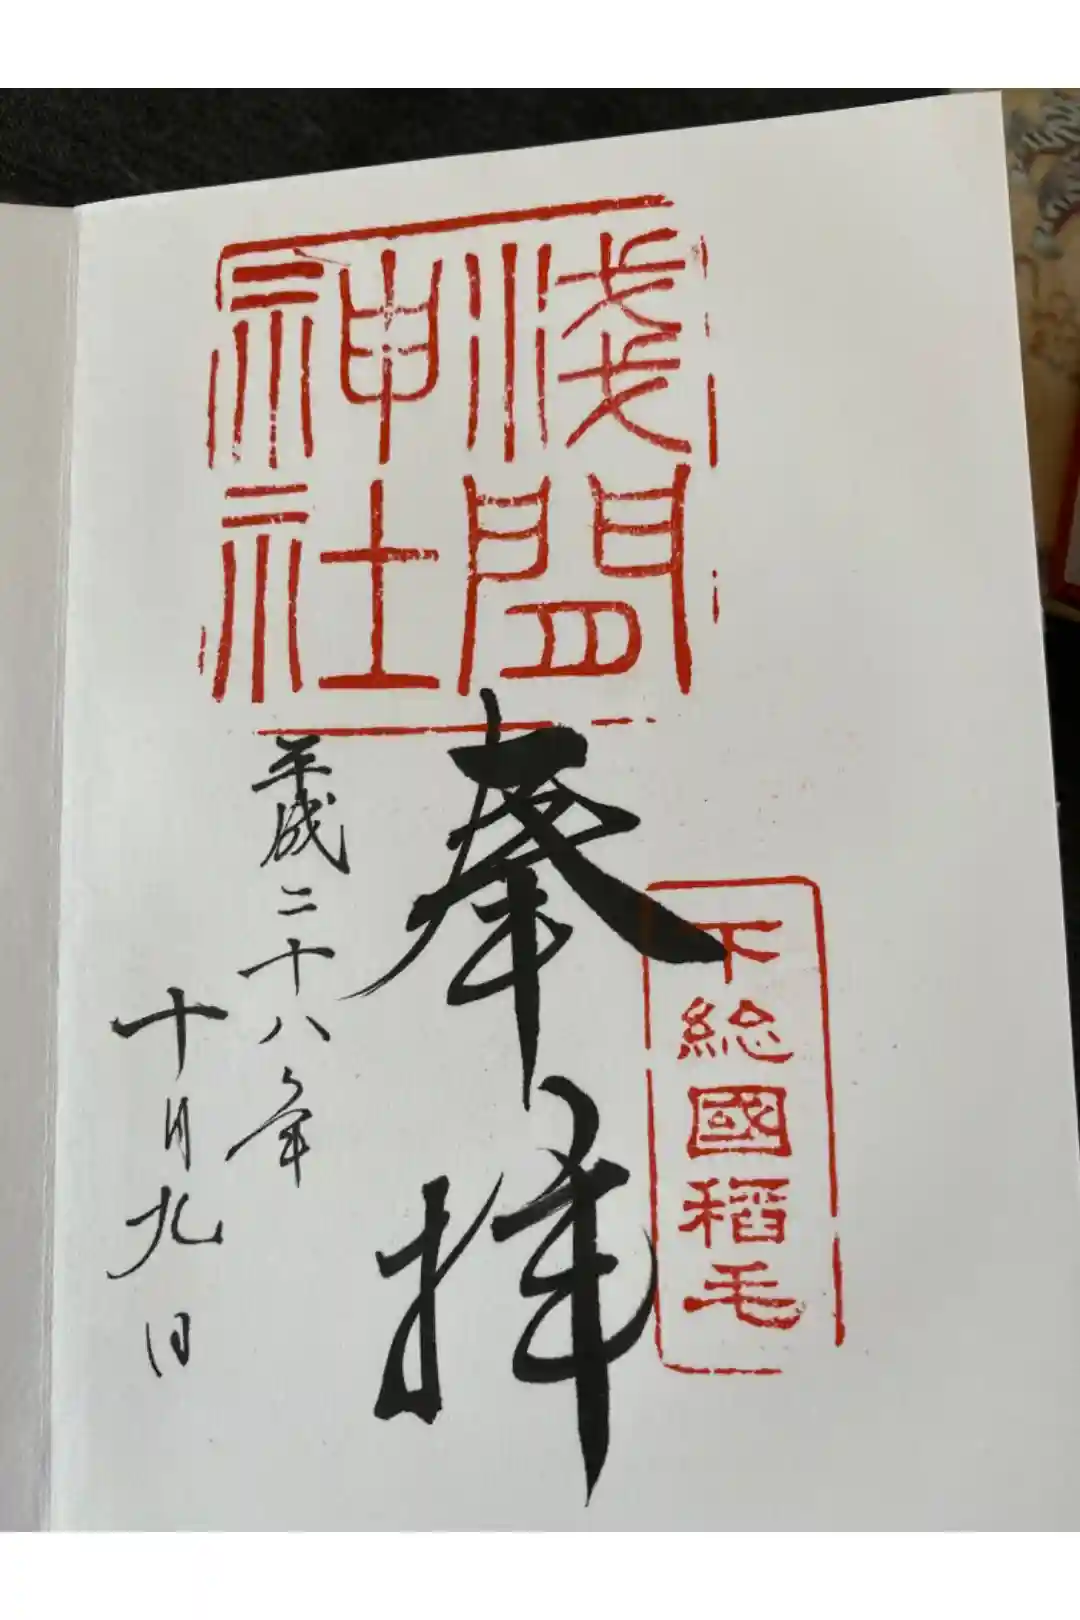 淺間
神社
下総國稲毛
奉拝
平成二十八年
十月九日